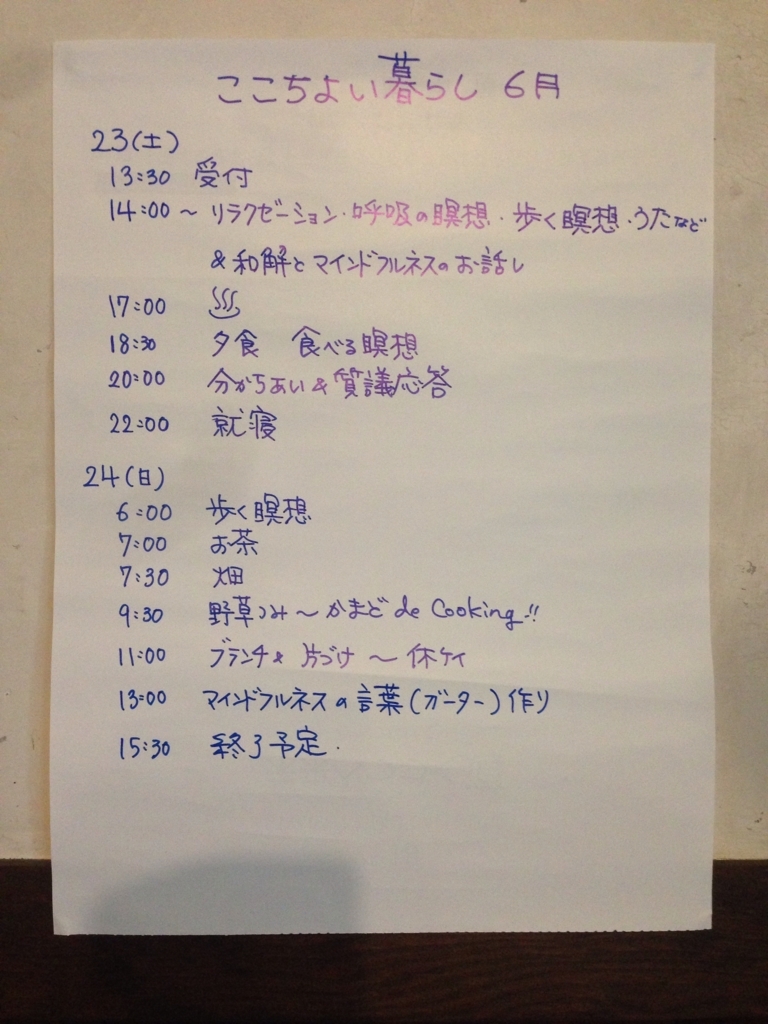 ここちよい暮らし 6月
23(土)
13:30 受付
14:00 〜 リラクゼーション・呼吸の瞑想・歩く瞑想・うたなど
& 和解とマインドフルネスのお話し
17:00 ♨
18:30 夕食 食べる瞑想
20:00 分かちあい & 質議応答
22:00 就寝
24(日)
6:00 歩く瞑想
7:00 お茶
7:30 畑
9:30 野草つみ〜かまど de Cooking!!
11:00 ブランチ & 片づけ 〜 休ケイ
13:00 マインドフルネスの言葉(ガーター)作り
15:30 終了予定.